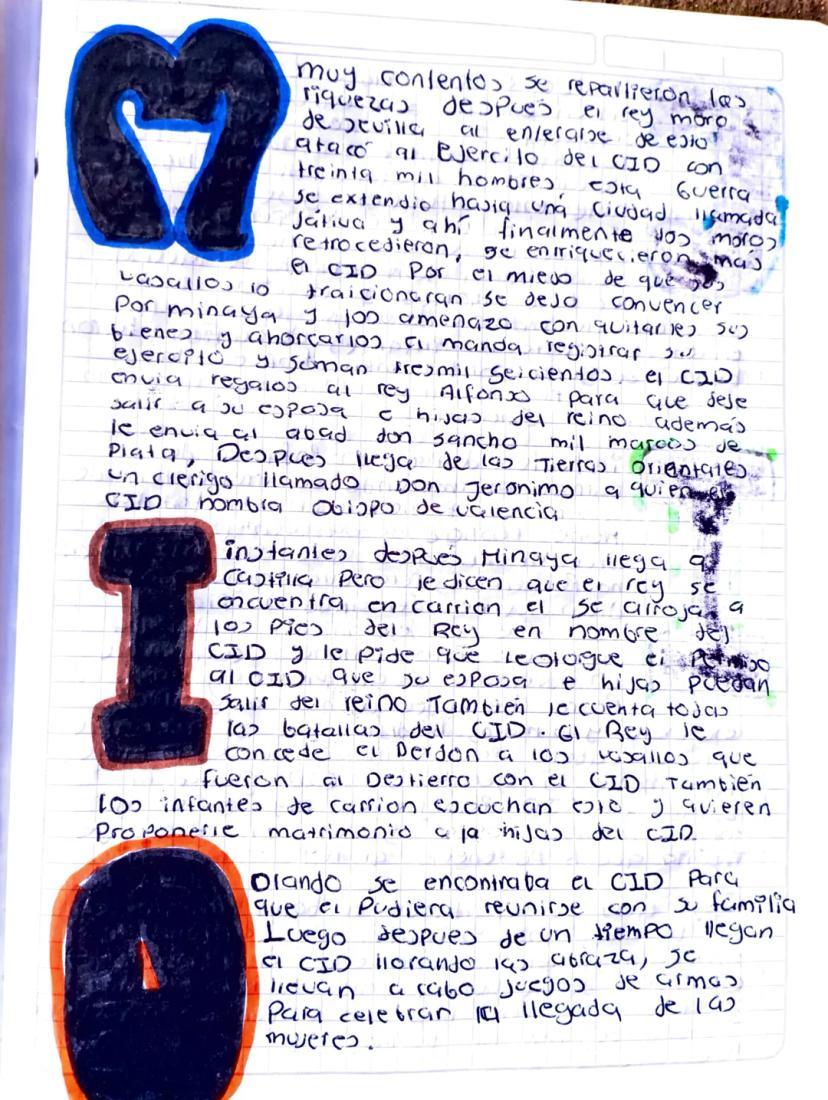 M
muy contentos se repartieron las
riquezas despues el rey moro
de sevilla al enterarse de esto
atacó al Ejercito del CID con
treinta mil hombres, esta Guerra
se extendio hasta una ciudad llamada
Játiva y ahí finalmente los moros
retrocedieron, se enriquecieron más
el CID Por el miedo de que sus
vasallos lo traicionaran se dejo convencer
Por minaya y los amenazo con quitarles sus
bienes y ahorcarlos el manda registrar su
ejercito y suman tresmil seicientos, el CID
envia regalos al rey Alfonso para que deje
salir a su esposa e hijas del reino además
le envia al abad don sancho mil marcos de
Plata, Despues llega de las Tierras Orientales
un clerigo llamado Don Jeronimo a quien el
CID nombra Obispo de valencia
I
instantes despues Minaya llega a
Castilla Pero le dicen que el rey se
encuentra en carrion el se arroja a
los Pies del Rey en nombre del
CID y le Pide que leotogue el Permiso
al CID que su esposa e hijas Puedan
salir del reino También le cuenta todas
las batallas del CID. El Rey le
concede el Perdon a los vasallos que
fueron al Destierro con el CID También
los infantes de carrion escuchan esto y quieren
Proponerle matrimonio a la hijas del CID.
O
Orando se encontraba el CID Para
que el Pudiera reunirse con su familia
Luego despues de un tiempo llegan
el CID llorando las abraza, se
llevan a cabo juegos de armas
Para celebrar la llegada de las
mujeres.